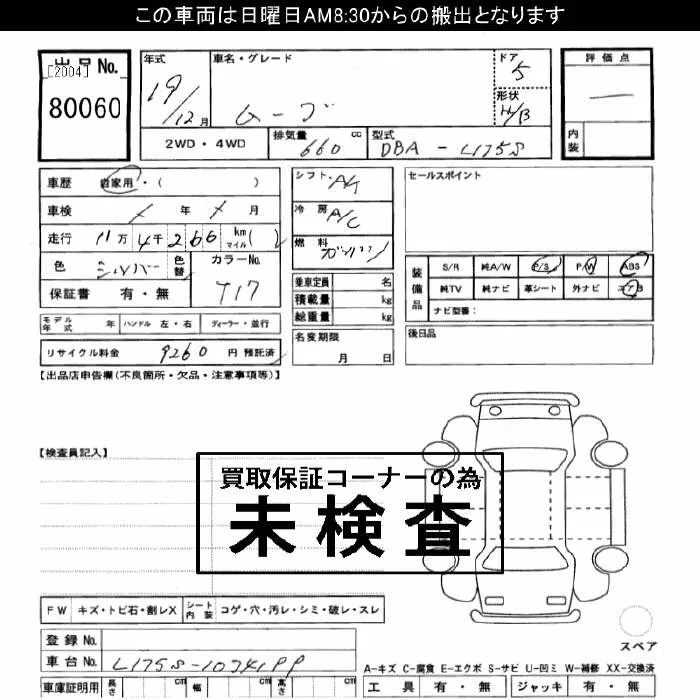 この車両は日曜日AM8:30からの搬出となります
出品 No.
[2004]
80060
年式
19/12月
車名・グレード
ムーブ
ドア
5
形状
H/B
評価点
一
内装
2WD・4WD
排気量 660 cc
型式 DBA-L175S
車歴 自家用・( )
車検 / 年 / 月
走行 11万4千266 km マイル( )
色 シルバー 色替
カラーNo. T17
保証書 有・無
シフト A/T
冷房 A/C
燃料 ガソリン
乗車定員 名
積載量 kg
総重量 kg
セールスポイント
装備品
S/R 純A/W P/S P/W ABS
純TV 純ナビ 革シート 外ナビ エアB
ナビ型番:
モデル年式 年 ハンドル 左・右 ディーラー・並行
リサイクル料金 9260 円 預託済
名変期限
月 日
後日品
【出品店申告欄(不良箇所・欠品・注意事項等)】
【検査員記入】
買取保証コーナーの為
未検査
FW キズ・トビ石・割レX シート内装 コゲ・穴・汚レ・シミ・破レ・スレ
登録No.
車台No. L175S-
スペア
A-キズ C-腐食 E-エクボ S-サビ U-凹ミ W-補修 XX-交換済
車庫証明用 長さ cm 幅 cm 高さ cm
工具 有・無 ジャッキ 有・無